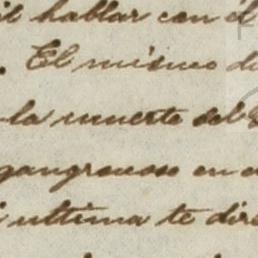 il hablar con él
. El músico d
la muerte del
gangrenoso en e
i ultima te dire